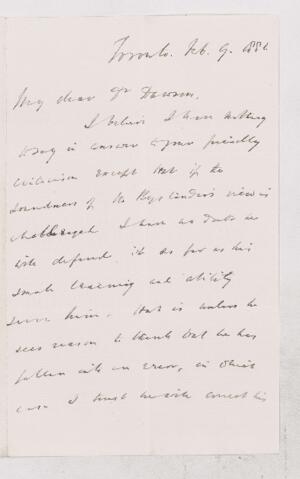 Toronto. Feb. 9. 188
My dear Dr Dawson,
I believe I have nothing
to say in answer to your friendly
criticism except that if the
soundness of the Bystander's view is
challenged I have no doubt he
will defend it as far as his
small learning and ability
serve him. that is unless he
sees reason to think that he has
fallen into an error, in which
case I trust he will correct his